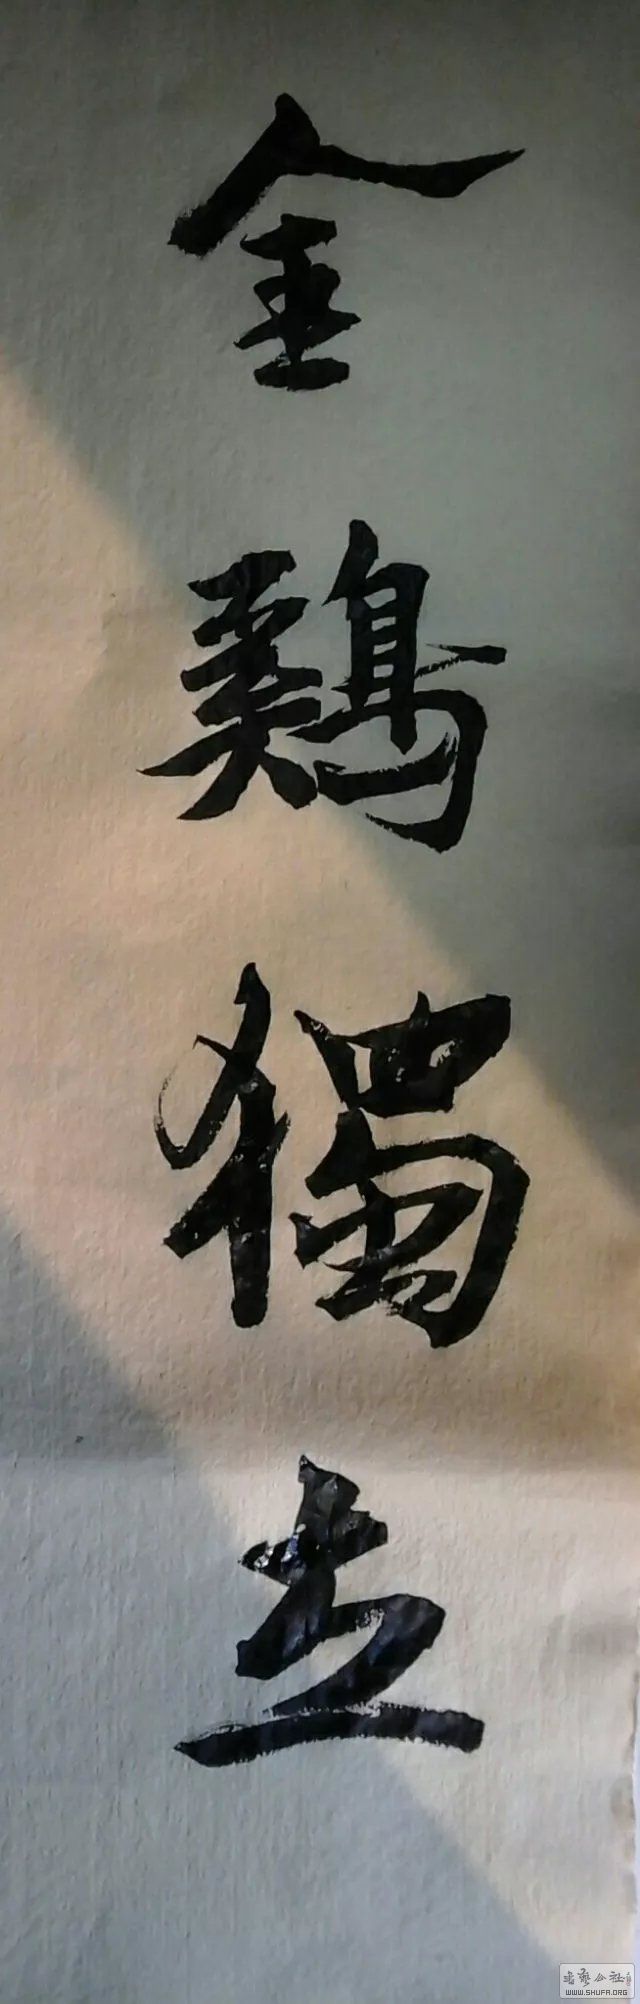 金鷄獨立
书艺公社
WWW.SHUFA.ORG